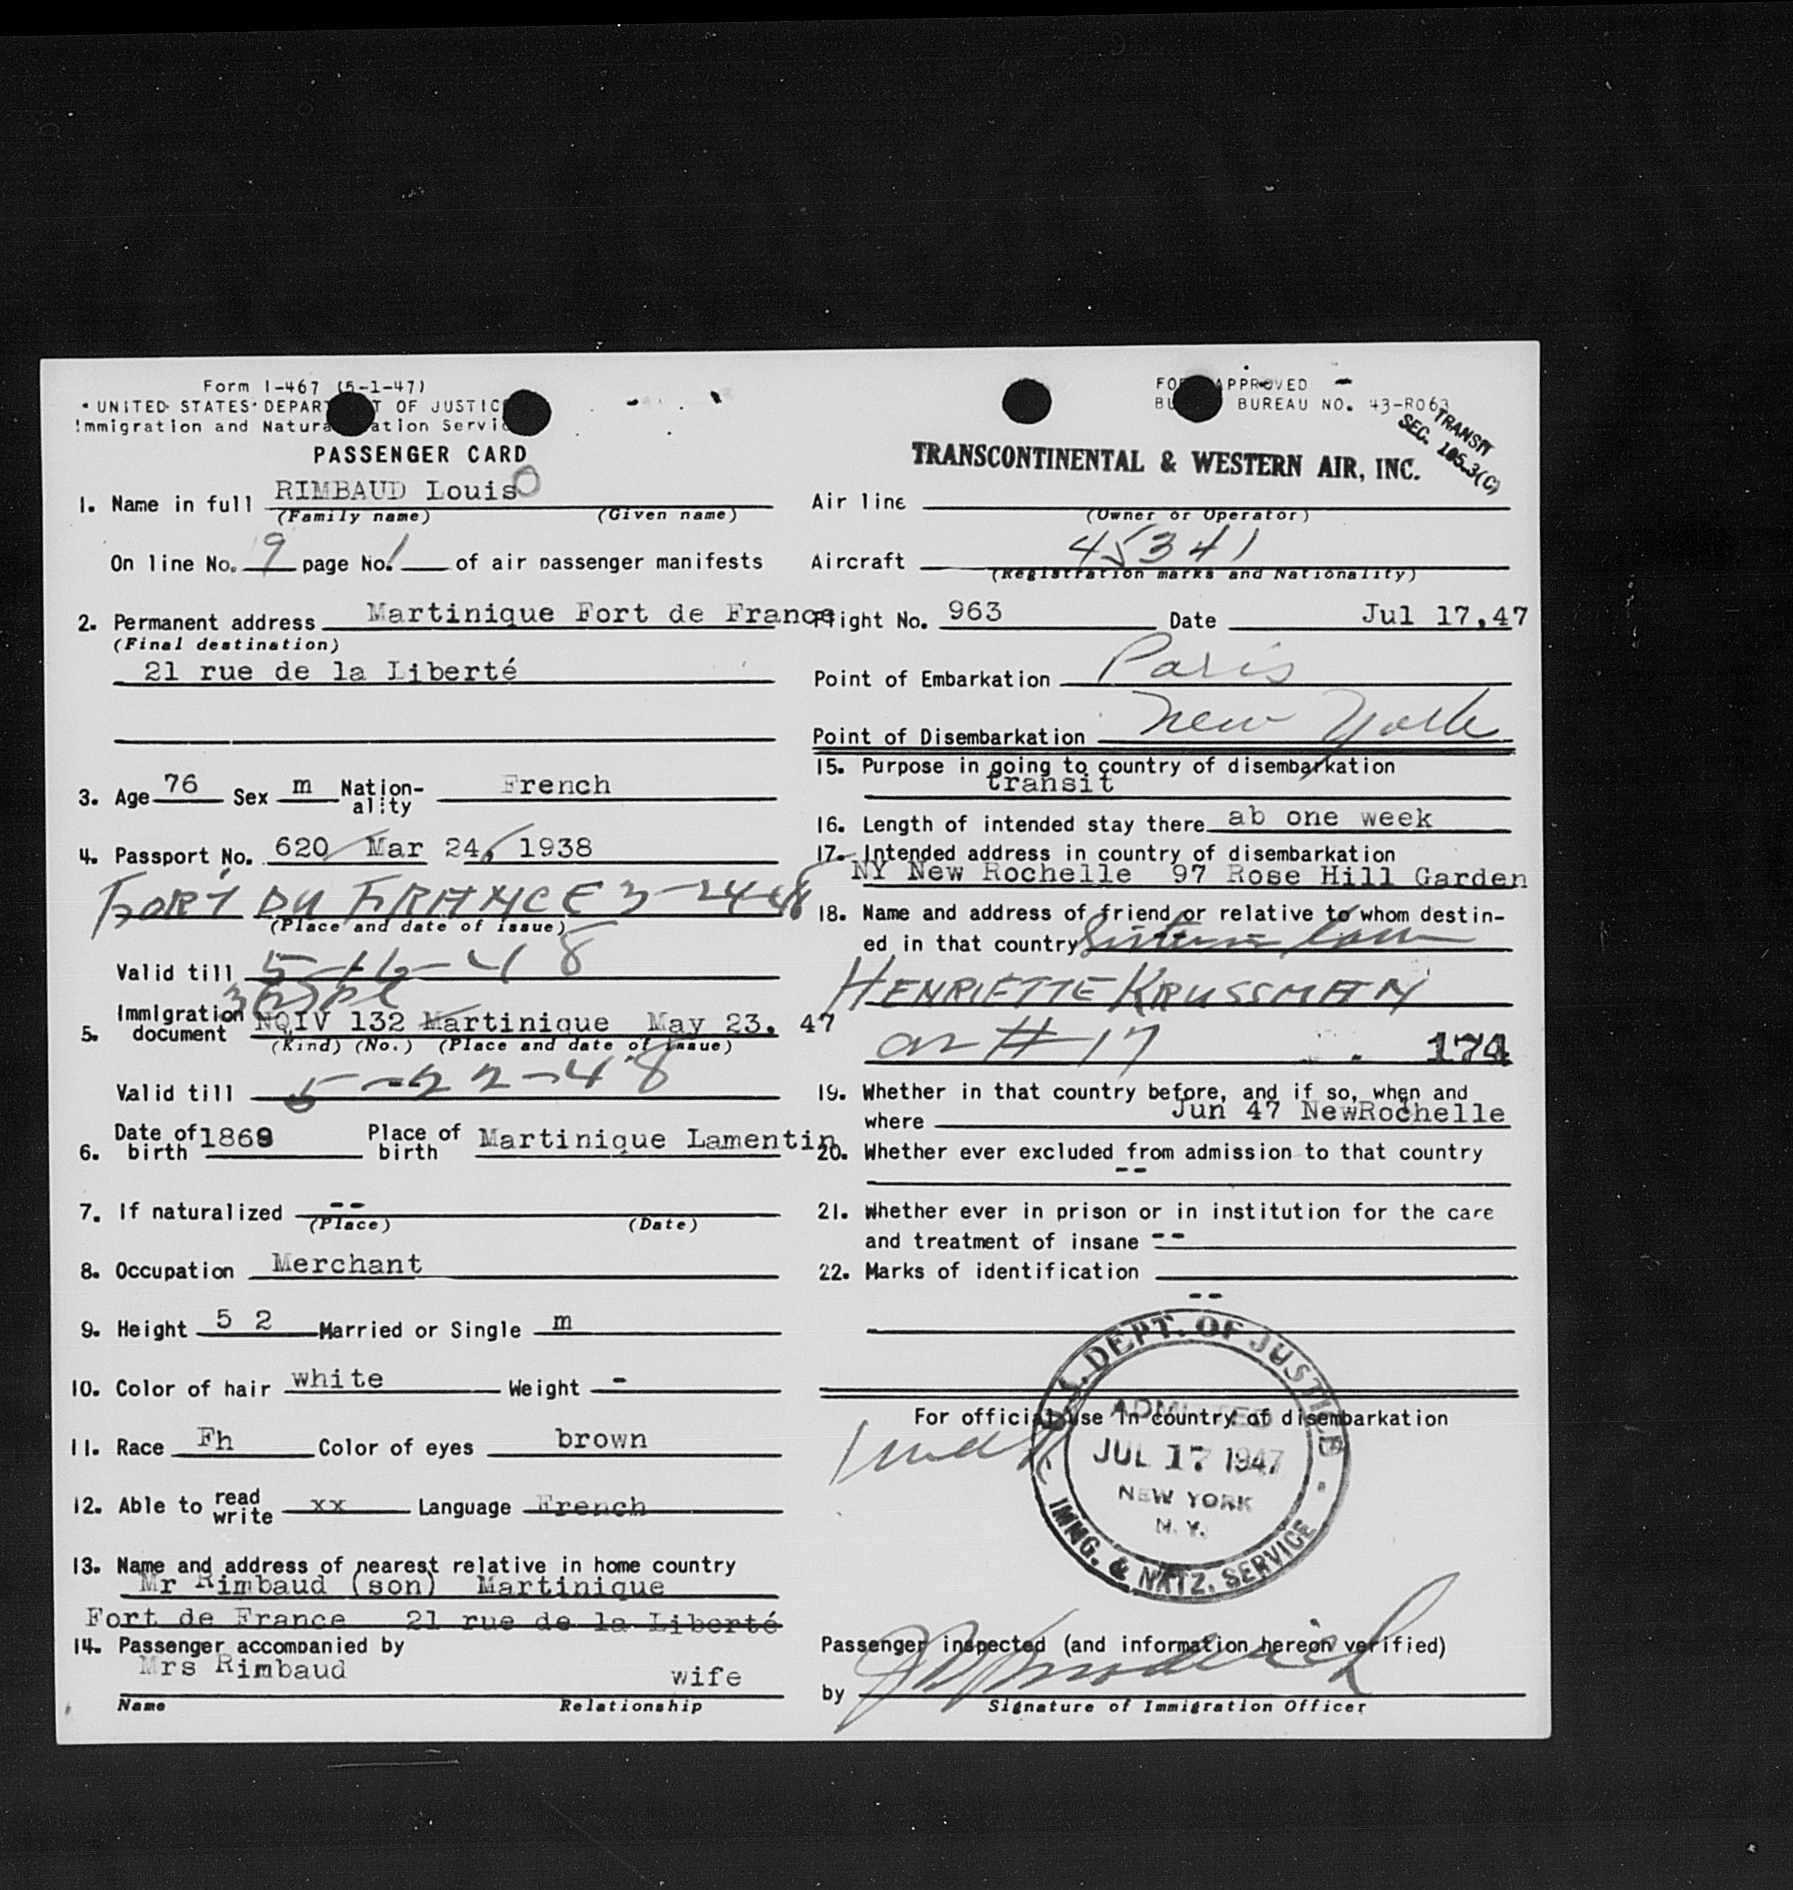 Form I-467 (5-1-47)
UNITED STATES DEPAR T OF JUSTIC
Immigration and Natura ation Servi
PASSENGER CARD
1. Name in full RIMBAUD Louis
(Family name) (Given name)
On line No. 9 page No. 1 of air passenger manifests
2. Permanent address Martinique Fort de France
(Final destination)
21 rue de la Liberté
3. Age 76 Sex m Nation-ality French
4. Passport No. 620 Mar 24, 1938
FORT DU FRANCE 3-24-48
(Place and date of issue)
Valid till 5-16-48
5. Immigration document NQIV 132 Martinique May 23. 47
(Kind) (No.) (Place and date of issue)
Valid till 5-22-48
6. Date of birth 1869 Place of birth Martinique Lamentin
7. If naturalized --
(Place) (Date)
8. Occupation Merchant
9. Height 5 2 Married or Single m
10. Color of hair white Weight -
11. Race Fh Color of eyes brown
12. Able to read write xx Language French
13. Name and address of nearest relative in home country
Mr Rimbaud (son) Martinique
Fort de France 21 rue de la Liberté
14. Passenger accompanied by
Mrs Rimbaud wife
Name Relationship
FO APPROVED
BU BUREAU NO. 43-R063
TRANSIT
SEC. 105.3(C)
TRANSCONTINENTAL & WESTERN AIR, INC.
Air line
(Owner or Operator)
Aircraft 45341
(Registration marks and Nationality)
Flight No. 963 Date Jul 17,47
Point of Embarkation Paris
Point of Disembarkation New York
15. Purpose in going to country of disembarkation
transit
16. Length of intended stay there ab one week
17. Intended address in country of disembarkation
NY New Rochelle 97 Rose Hill Garden
18. Name and address of friend or relative to whom destin-
ed in that country Sister in law
HENRIETTE KRUSSMAN
on #17 174
19. Whether in that country before, and if so, when and
where Jun 47 NewRochelle
20. Whether ever excluded from admission to that country
--
21. Whether ever in prison or in institution for the care
and treatment of insane --
22. Marks of identification
--
For official use in country of disembarkation
U.S. DEPT. OF JUSTICE
ADMITTED
JUL 17 1947
NEW YORK
N. Y.
IMMG. & NATZ. SERVICE
Passenger inspected (and information hereon verified)
by
Signature of Immigration Officer